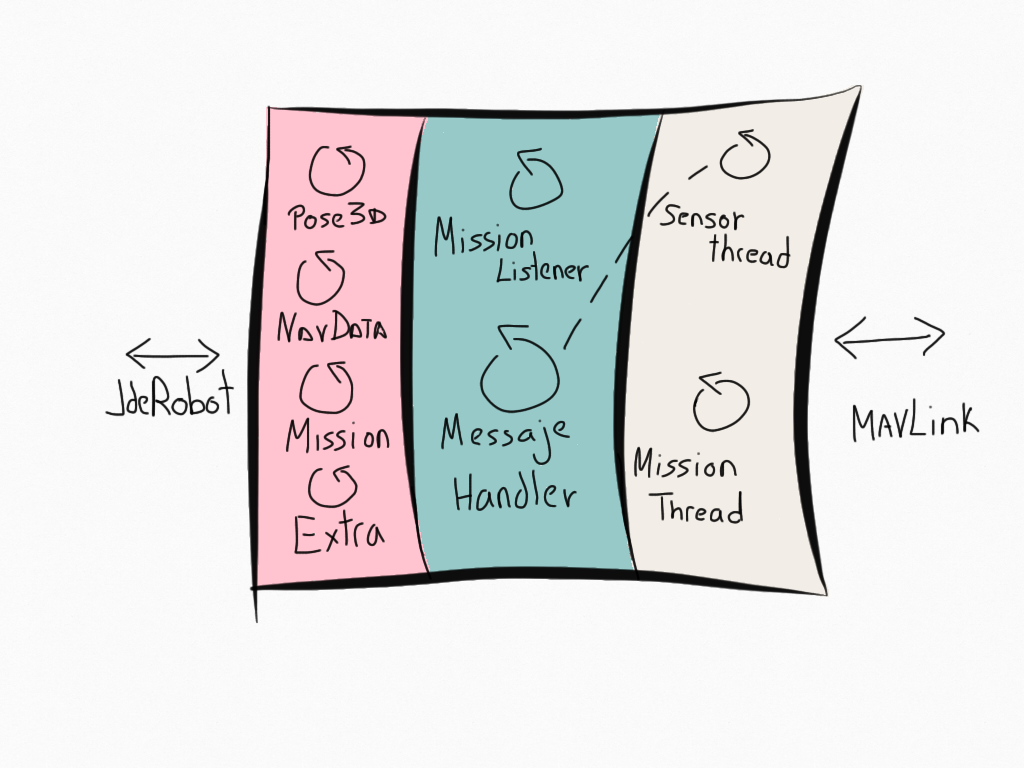 Pose3D
NavData
Mission
Extra
Mission
Listener
Messaje
Handler
Sensor
thread
Mission
Thread
JdeRobot
MAVLink